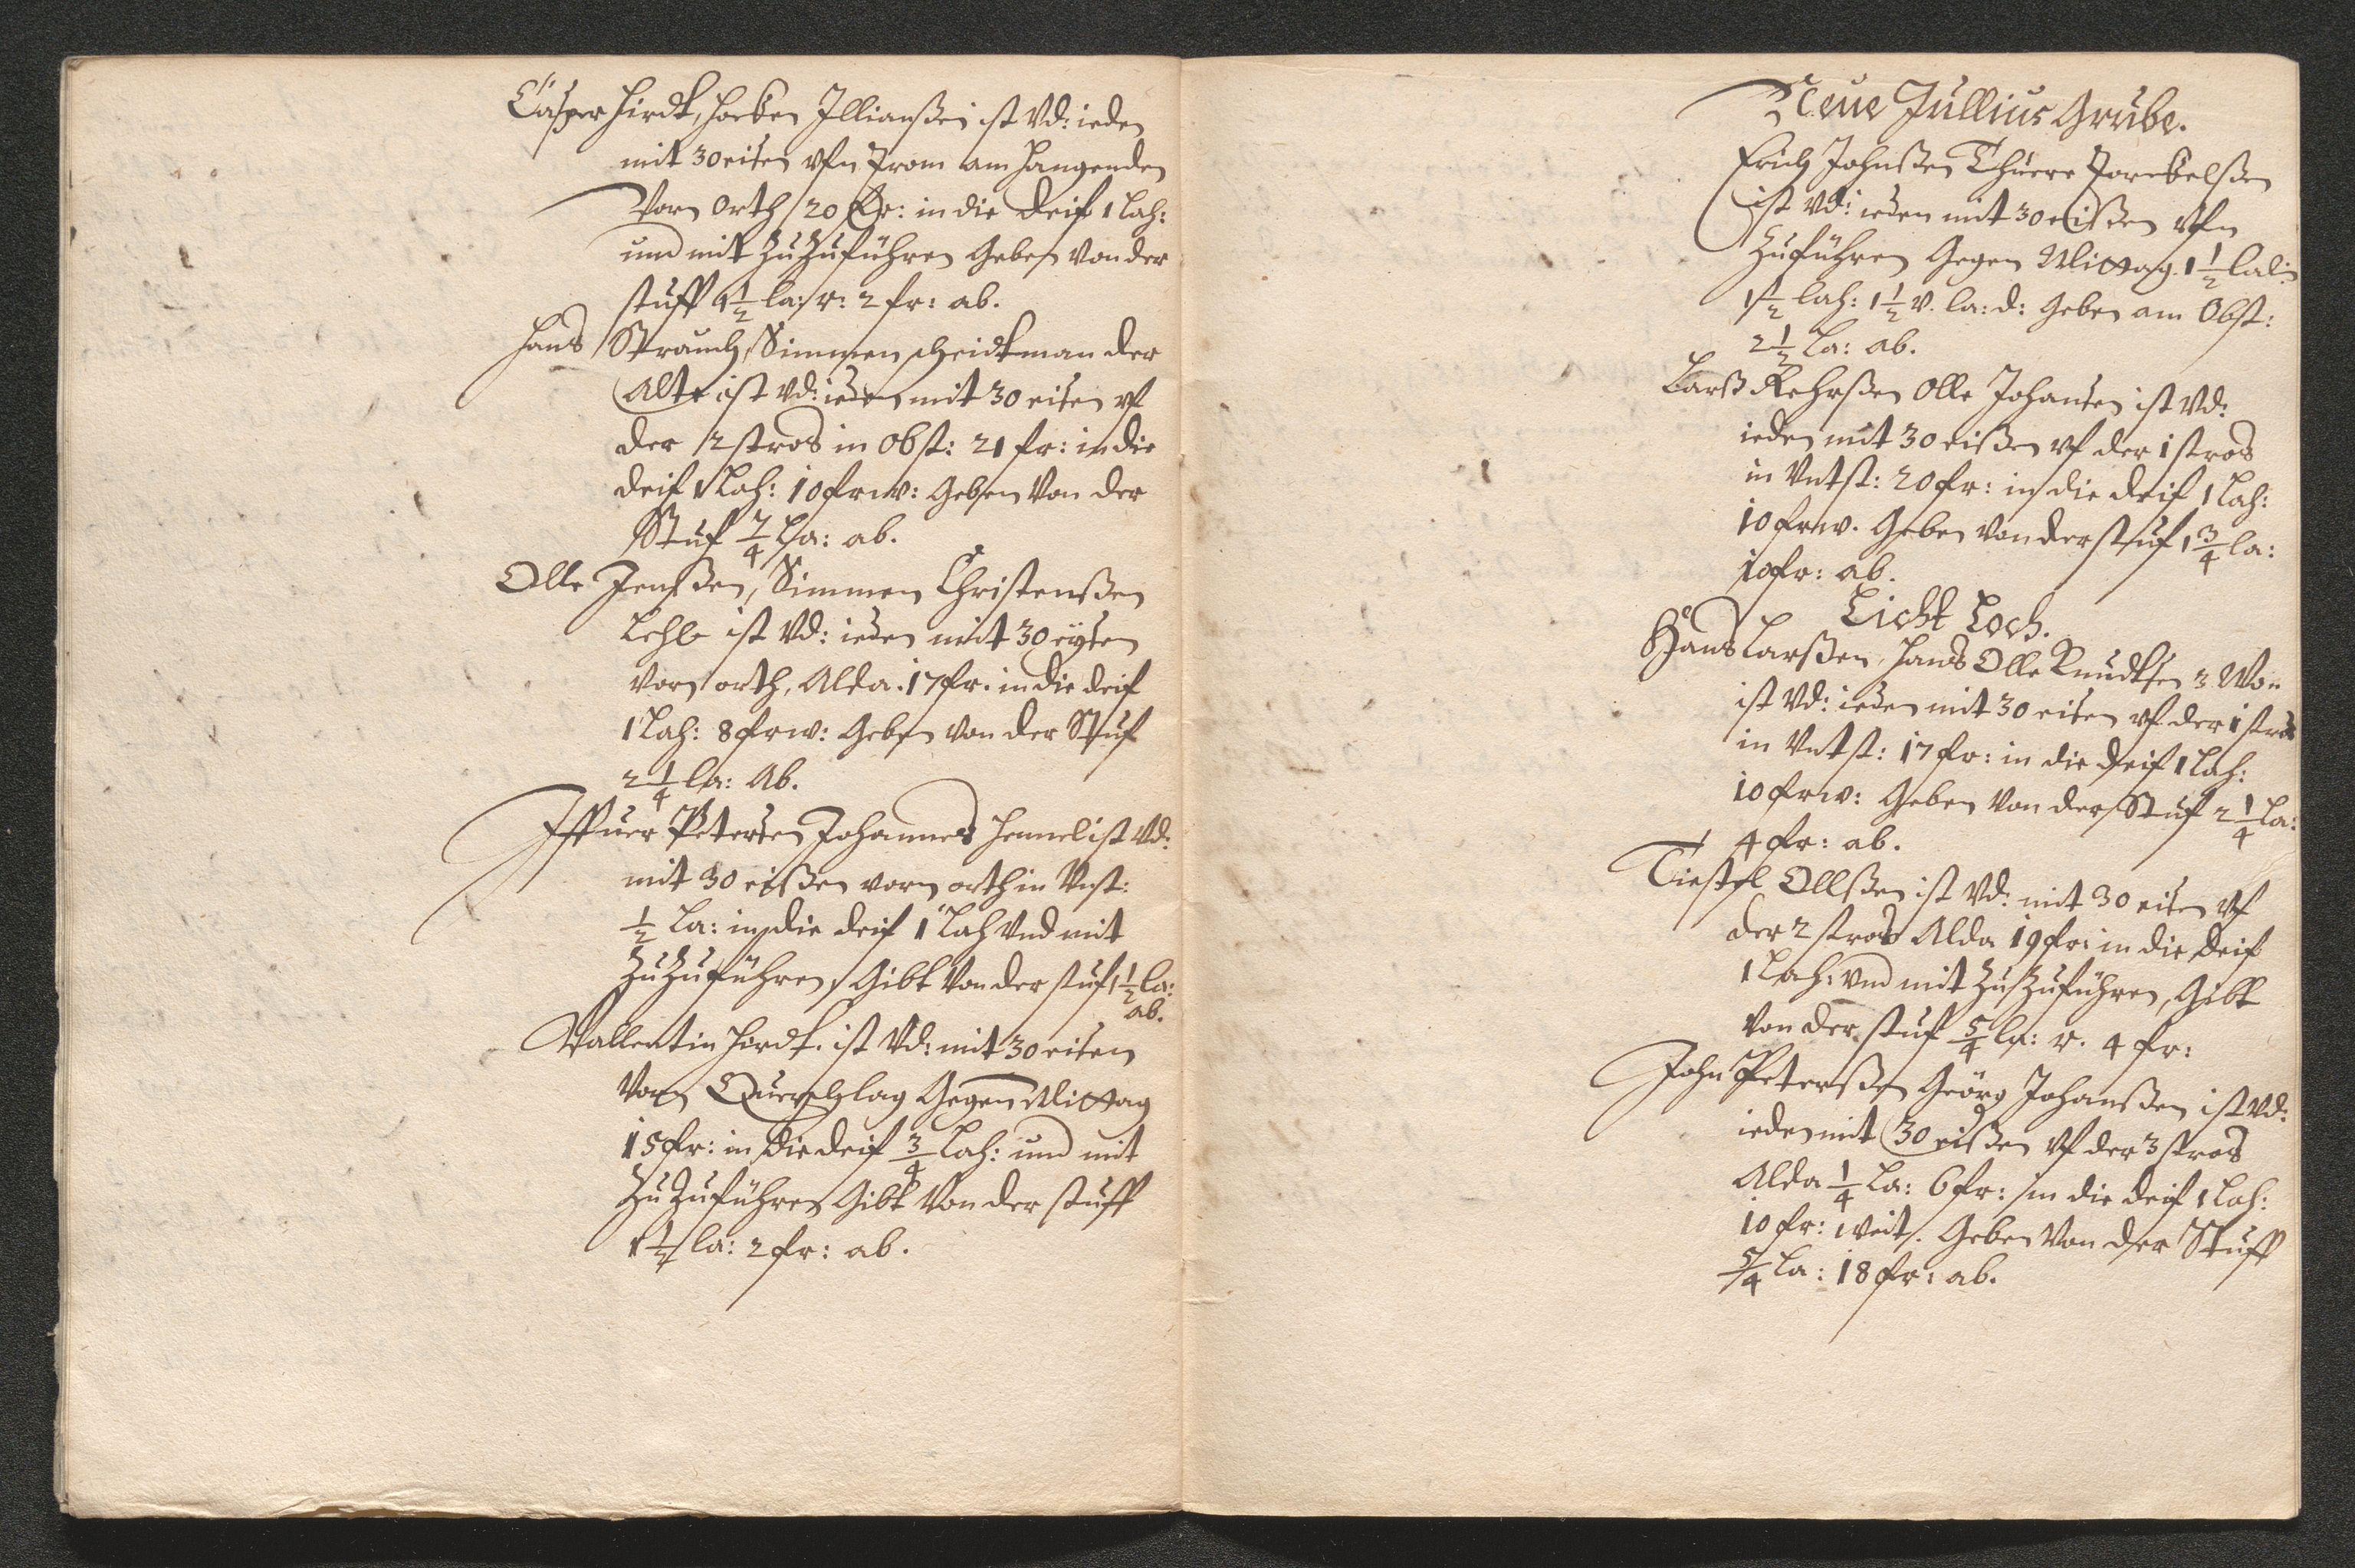 Casper Hirdt, Hocken Jllianßen ist Vd: ieden
mit 30 eisen vfn From am Hangenden
Vorn Orth 20 fr: in die deif 1 Lah:
und mit ZuZuführen Geben Von der
stuff 4½ la: w: 2 fr: ab.
Hans Strauch, Simmen scheidtman der
Alte ist Vd: ieden mit 30 eisen vf
der 2 stros in Obst: 21 fr: in die
deif 1 Lah: 10 fr w: Geben Von der
Stuf 7/4 La: ab.
Olle Jenßen, Simmen Christenßen
Lehl ist Vd: ieden mit 30 eysen
Vorn orth, Alda. 17 fr. in die deif
1 Lah: 8 fr w: Geben Von der Stuf
2¼ la: Ab.
Iffuer Petersen Johannes Hennel ist Vd:
mit 30 eißen vorn orth in Vnst:
½ La: in die deif 1 Lah Vnd mit
ZuZuführen, Gibt Von der stuf 1½ la:
ab.
Vallentin Hirdt. ist Vd: mit 30 eisen
Vorn Querschlag Gegen Mittag
15 fr: in die deif ¾ Lah: und mit
ZuZuführen Gibt Von der stuff
1½ la: 2 fr: ab.
Neue Jullius Grube.
Erich Johnßen Thuere Torckelßen
ist Vd: ieden mit 30 eißen vfn
Zuführen Gegen Mittag. 1½ lah:
1½ lah: 1½ v. la: d: Geben am Obst:
2½ La: ab.
Larß Rehrßen Olle Johansen ist Vd:
ieden mit 30 eißen vf der 1 stros
in Vntst: 20 fr: in die deif 1 Lah:
10 fr w. Geben Von der stuf 1¾ la:
10 fr: ab.
Licht Loch.
Hans Larßen, Hans Olle Knudtsen 3 Mon
ist Vd: ieden mit 30 eisen vf der 1 stros
in Vntst: 17 fr: in die deif 1 Lah:
10 fr w: Geben Von der Stuf 2¼ La:
4 fr: ab.
Ollßen ist Vd: mit 30 eisen vf
der 2 stros Alda 19 fr: in die deif
1 Lah: vnd mit ZuZuführen, Gibt
Von der stuf 5/4 la: w. 4 fr:
John Peterßen Geörg Johanßen ist Vd:
ieden mit 30 eißen vf der 3 stros
Alda ¼ La: 6 fr: in die deif 1 Lah:
10 fr: weit. Geben Von der Stuff
5/4 La: 18 fr: ab.